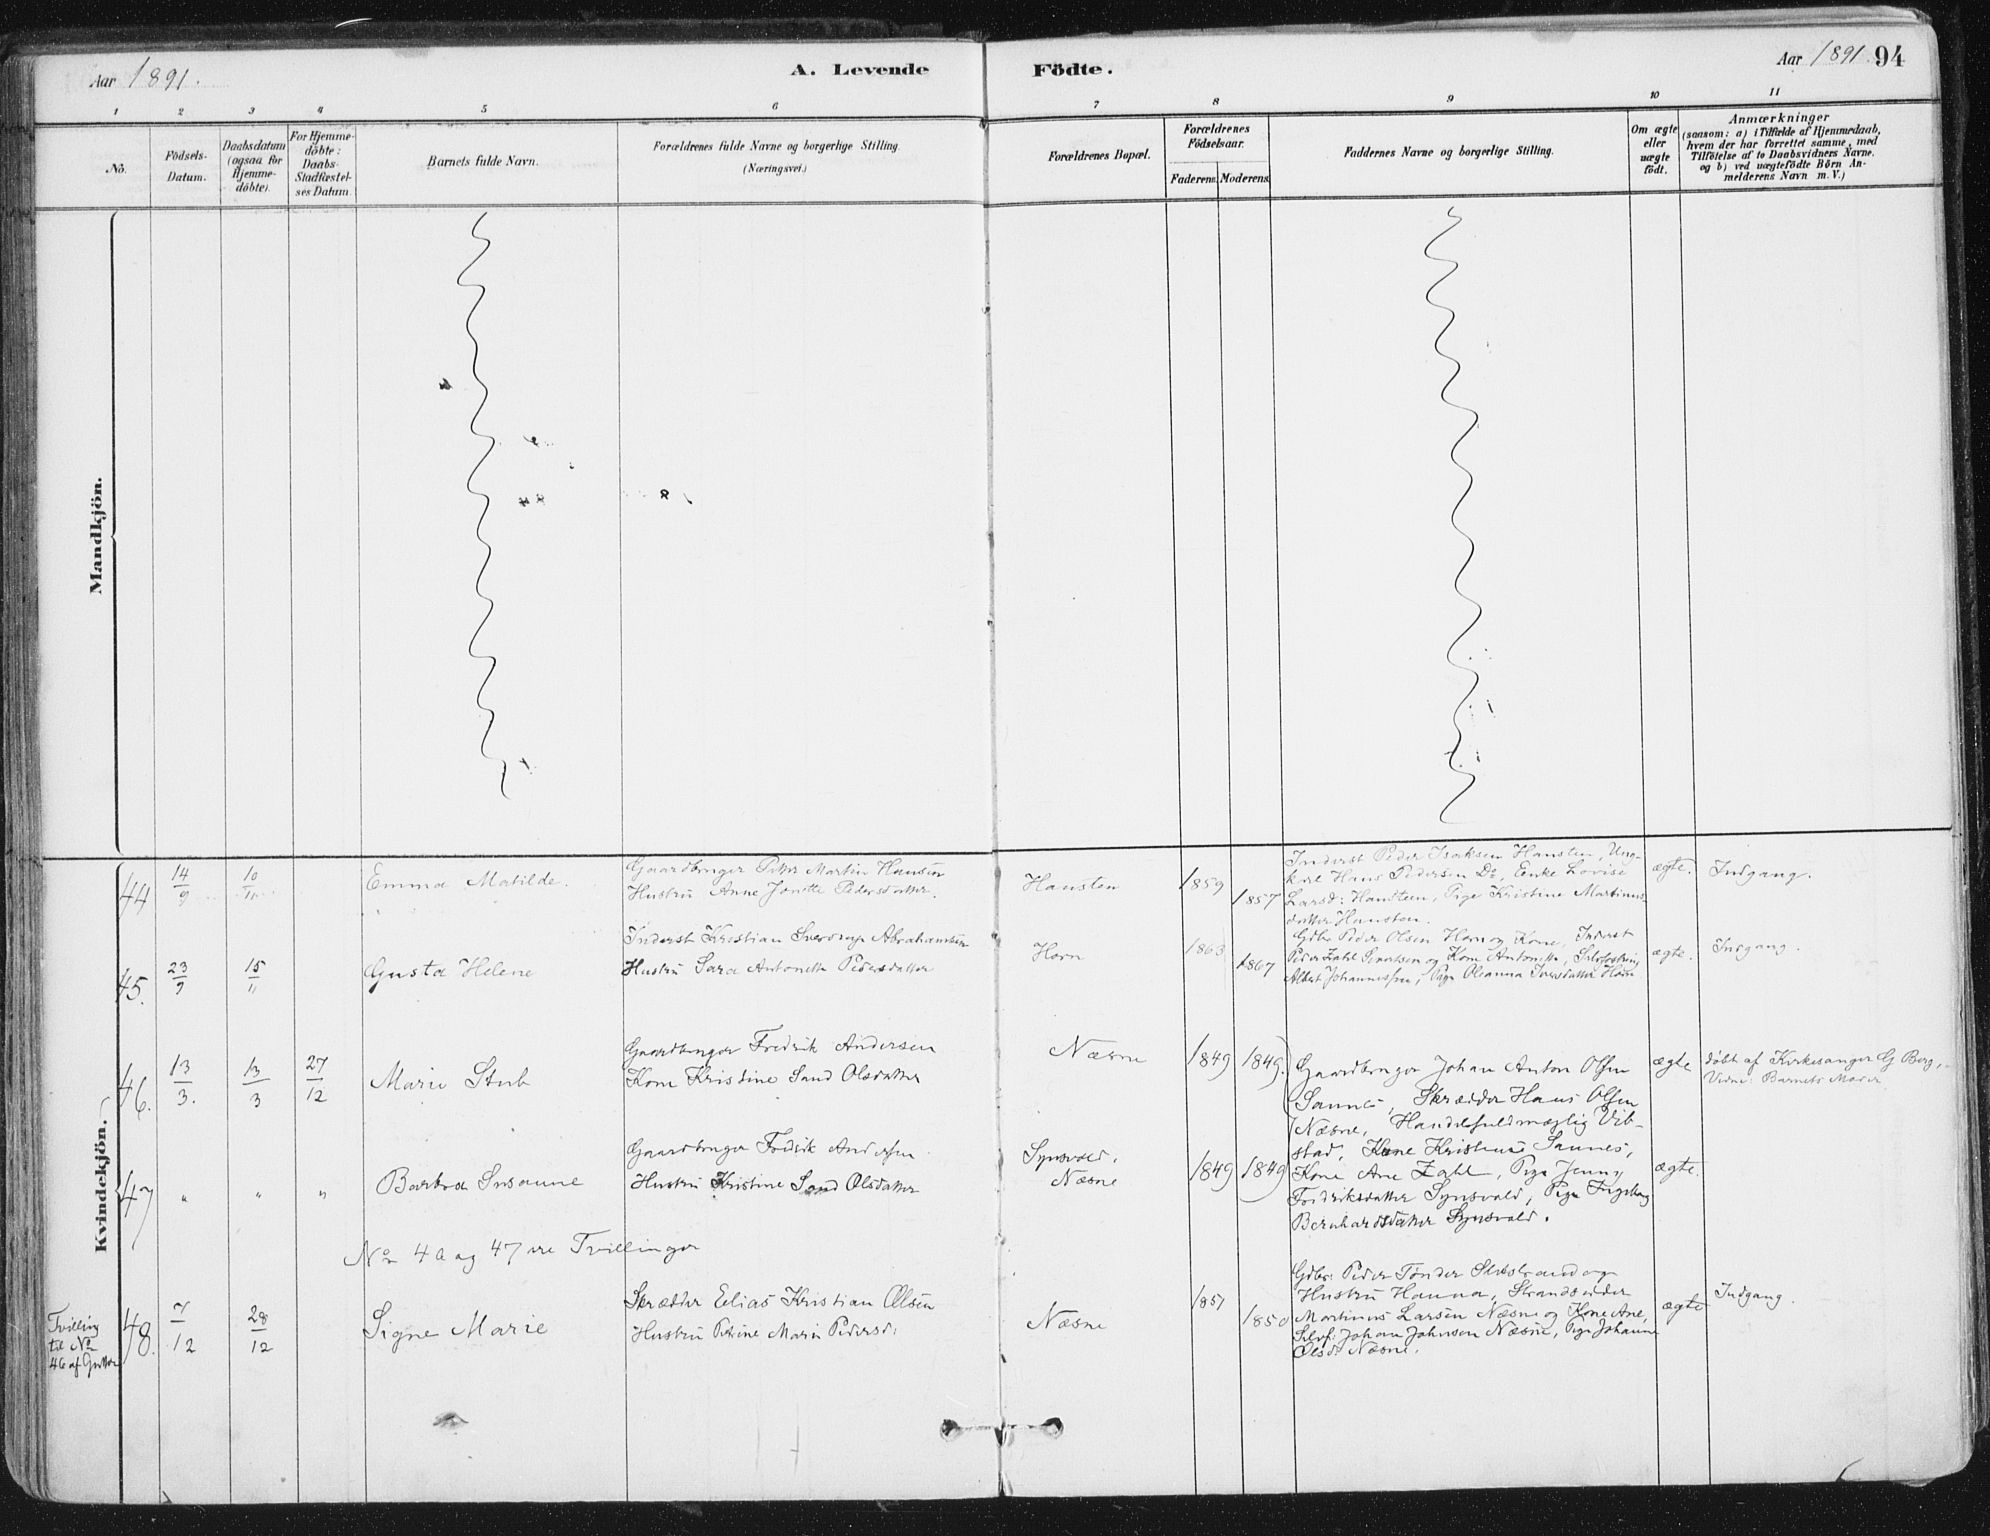 Aar 1891.
A. Levende Födte.
Aar 1891. 94
1 2 3 4 5 6 7 8 9 10 11
No.
Födsels-
Datum.
Daabsdatum
(ogsaa for
Hjemme-
döbte).
For Hjemme-
döbte:
Daabs-
Stadfæstel-
ses Datum.
Barnets fulde Navn.
Forældrenes fulde Navne og borgerlige Stilling
(Næringsvei.)
Forældrenes Bopæl.
Forældrenes
Födselsaar.
Faderens. Moderens.
Faddernes Navne og borgerlige Stilling.
Om ægte
eller
uægte
födt.
Anmærkninger
(saasom: a) i Tilfælde af Hjemmedaab,
hvem der har forrettet samme, med
Tilföielse af to Daabsvidners Navne.
og b) ved uægtefödte Börn An-
melderens Navn m. V.)
Mandkjön.
Kvindekjön.
44
14/9
10/11
Emma Matilde.
Gaardbruger Petter Martin Hansen
Hustru Anne Jonette Pedersdatter.
Hansten
1859
1857
Inderst Peder Isaksen Hansten, Ung-
karl Hans Pedersen Do, Enke Lovise
Larsd: Hansteen, Pige Kristine Martinus-
datter Hansten.
ægte.
Indgang.
45.
23/9
15/11
Gusta Helene
Inderst Kristian Sverdrup Abrahamsen
Hustru Sara Antonette Pedersdatter
Horn
1863
1867
Gdbr Peder Olsen Horn og Kone, Inderst
Peder Zahl og Kone Antonette,
Albert Johannessen, Pige Oleanna Iversdatter Horn
ægte.
Indgang.
46.
13/3.
13/3
27/12
Marie Stub
Gaardbruger Fredrik Andersen
Kone Kristine Sand Olsdatter
Næsne
1849
1849.
Gaardbruger Johan Anton Olsen
Sannes, Skrædder Hans Olsen
Næsne, Handelsfuldmægtig Vib-
stad, Kone Kristine Sannes,
Kone Ane Zahl, Pige Jenny
Fredriksdatter Synsvald, Pige Ingeborg
Bernhardsdatter Synsvald.
ægte
døbt af Kirkesanger G Berg,
Vidne: Barnets Moder
47
" " "
Barbra Susanne
Gaardbruger Fredrik Andersen
Hustru Kristine Sand Olsdatter
Synsvald.
Næsne
1849
1849
ægte.
No 46 og 47 ere Tvillinger
Tvilling
til No
46 af Gutter
48.
7/12
28/12
Signe Marie
Skrædder Elias Kristian Olsen
Hustru Petrine Marie Pedersd:
Næsne
1851
1850
Gdbr: Peder Tønder og
Hustru Hanna, Strandsidder
Martinus Larsen Næsne og Kone Ane,
Selvf: Johan Johnsen Næsne, Pige Johanne
Olsd: Næsne.
ægte
Indgang.